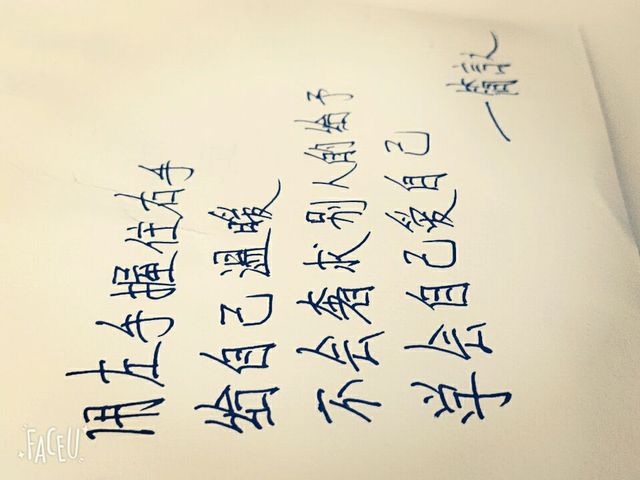 用左手握住右手
给自己温暖
不会奢求别人的给予
学会自己爱自己
FACEU